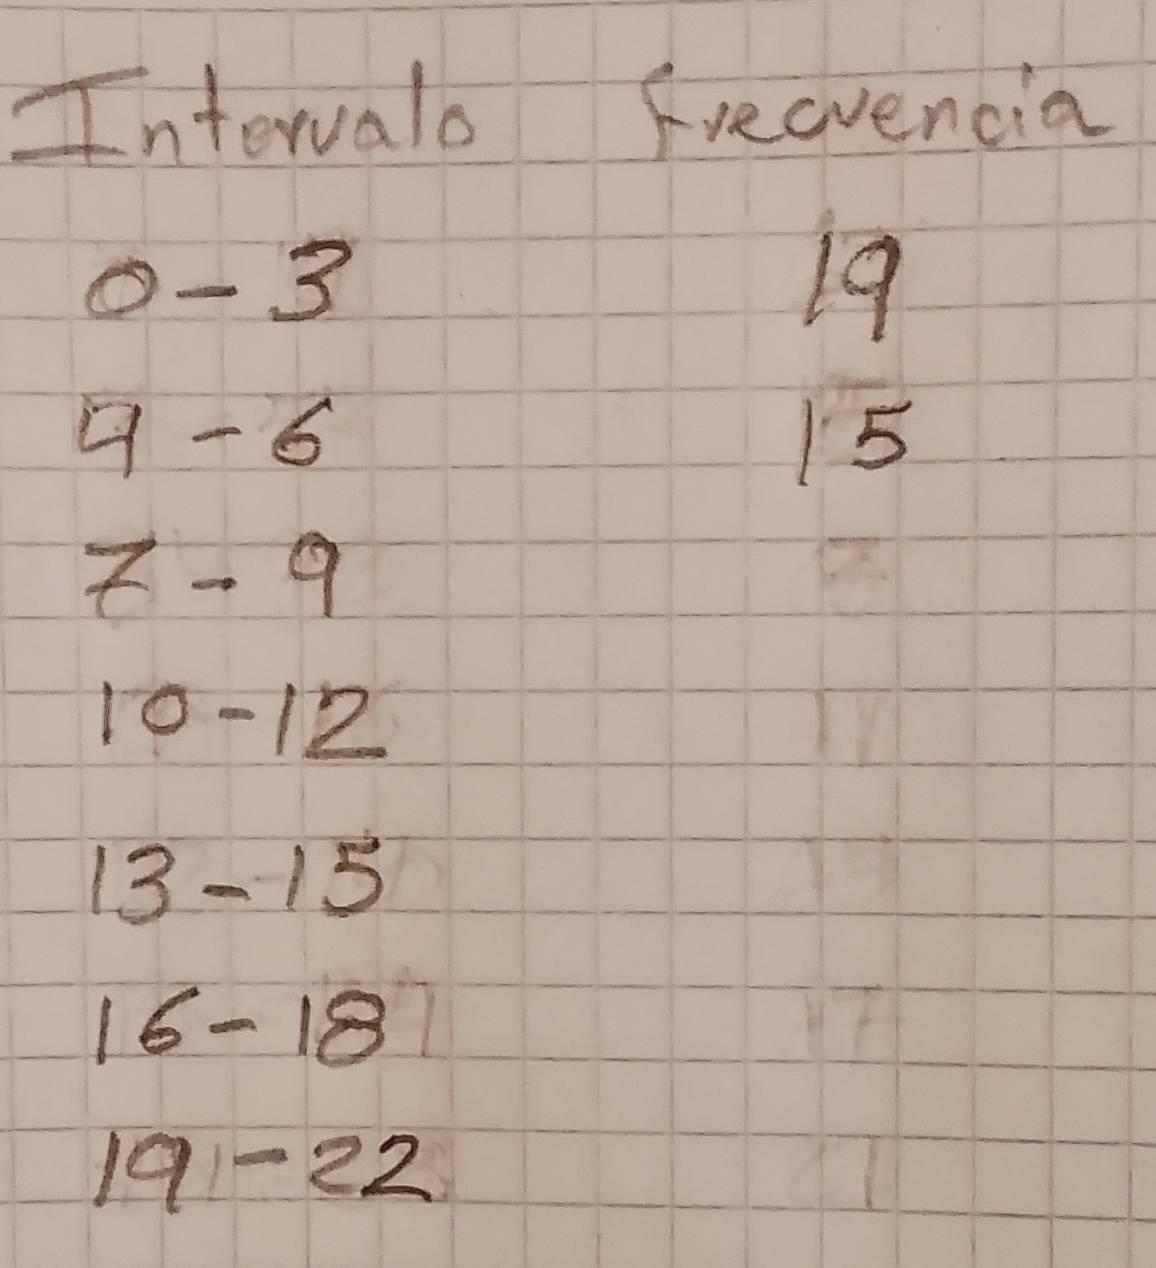 Intervalo frecuencia
0-3 19
4-6 15
7-9
10-12
13-15
16-18
19-22